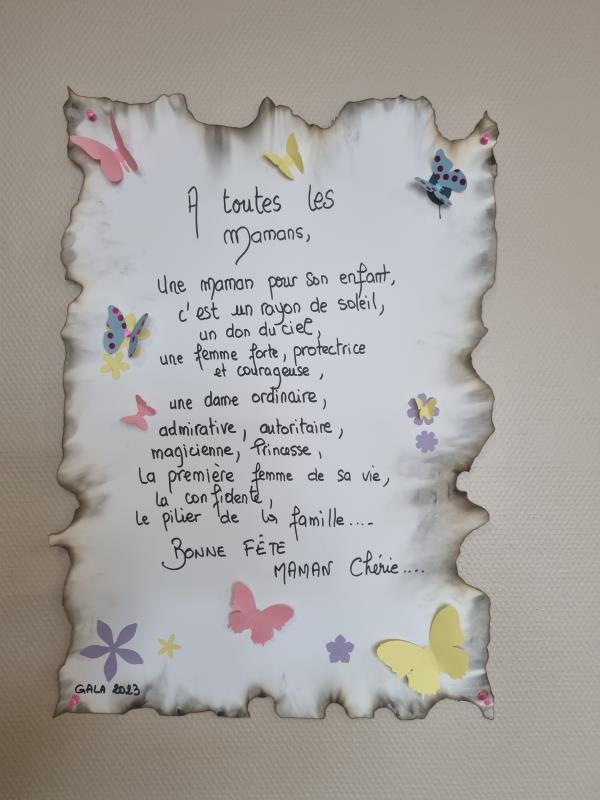 A toutes les
Mamans,
Une maman pour son enfant,
c'est un rayon de soleil,
un don du ciel,
une femme forte, protectrice
et courageuse,
une dame ordinaire,
admirative, autoritaire,
magicienne, Princesse,
La première femme de sa vie,
La confidente,
Le pilier de la famille....
BONNE FÊTE
MAMAN Chérie....
GALA 2023